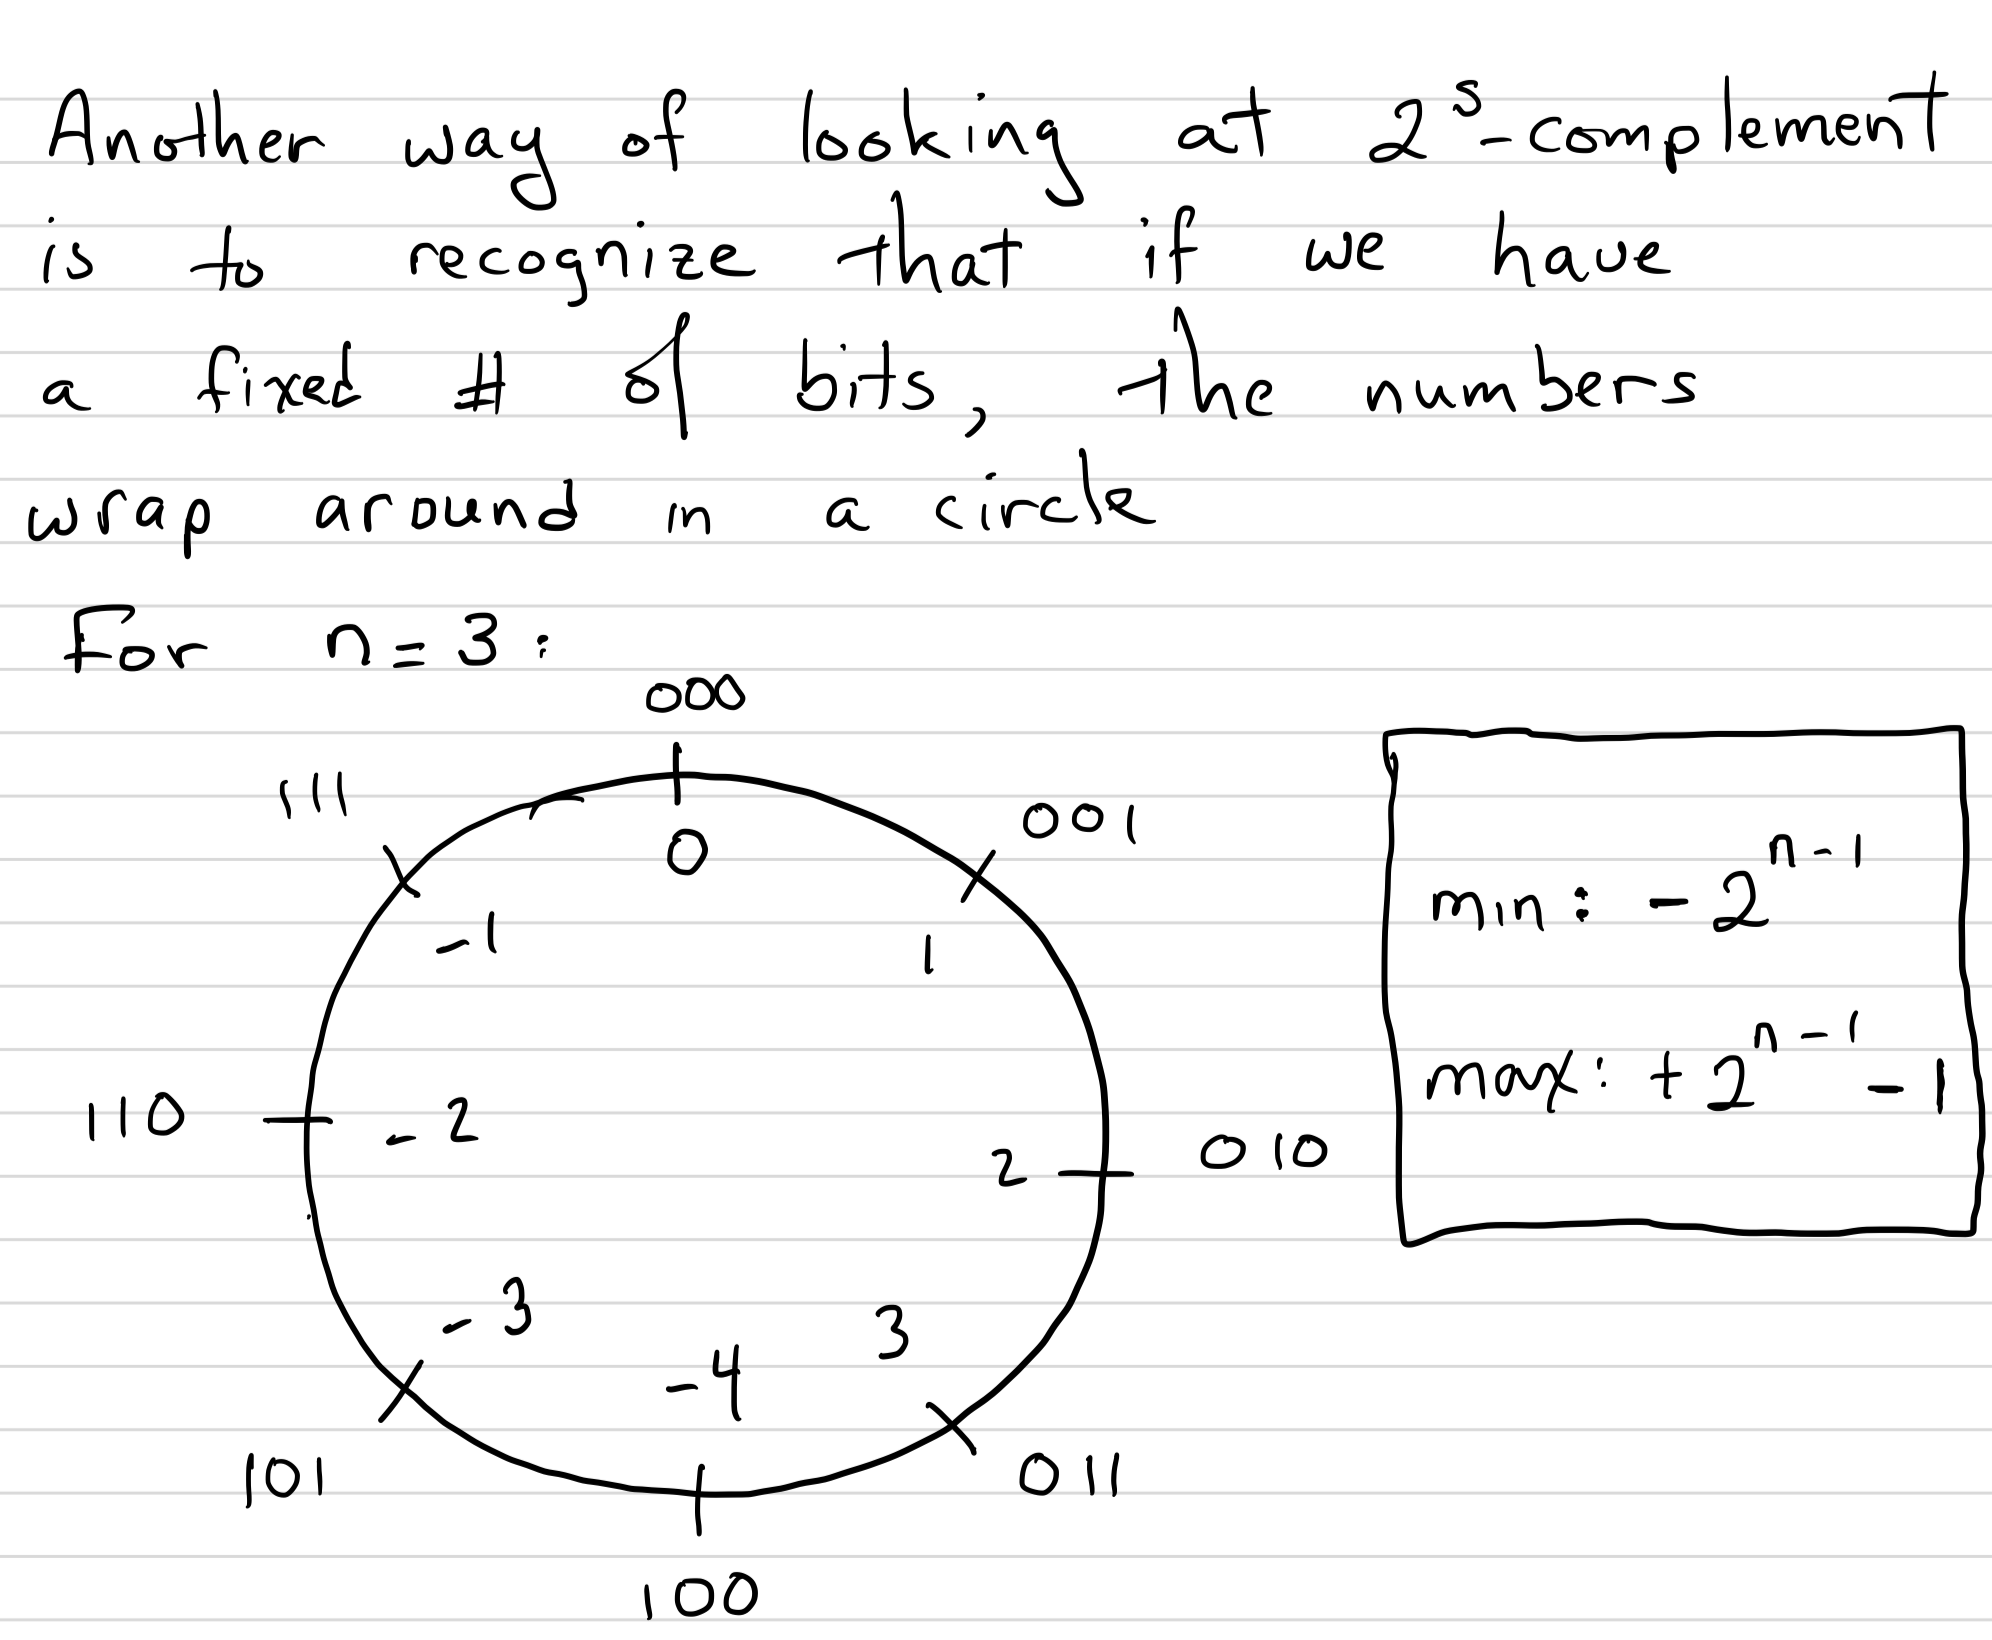 Another way of looking at 2^s-complement
is to recognize that if we have
a fixed # of bits, the numbers
wrap around in a circle
For n=3:
000
111
001
0
-1
1
110
-2
2
010
-3
3
-4
101
011
100
min: -2^{n-1}
max: +2^{n-1} -1